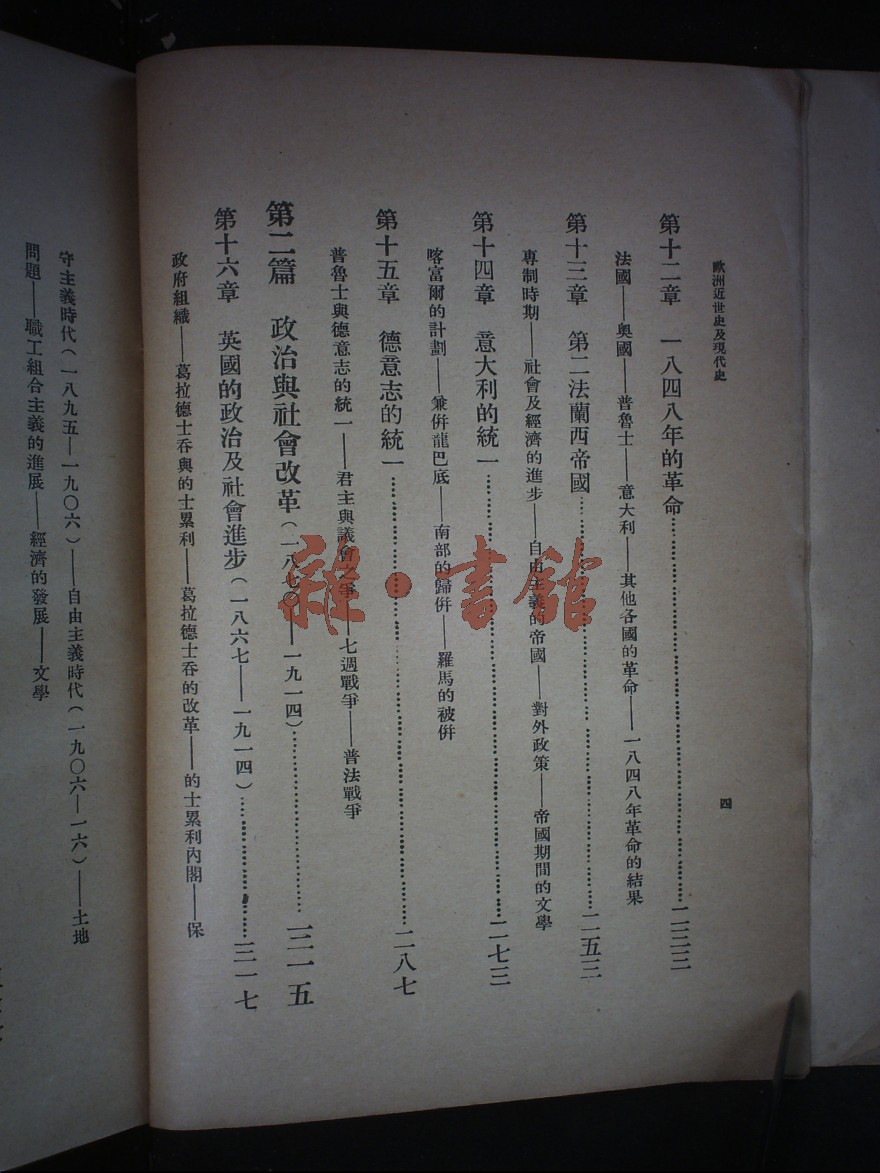 歐洲近世史及現代史
四
第十二章　一八四八年的革命……二三三
法國——奧國——普魯士——意大利——其他各國的革命——一八四八年革命的結果
第十三章　第二法蘭西帝國……二五三
專制時期——社會及經濟的進步——自由主義的帝國——對外政策——帝國期間的文學
第十四章　意大利的統一……二七三
喀富爾的計劃——兼併龍巴底——南部的歸併——羅馬的被併
第十五章　德意志的統一……二八七
普魯士與德意志的統一——君主與議會之爭——七週戰爭——普法戰爭
第二篇　政治與社會改革(一八七〇——一九一四)……三一五
第十六章　英國的政治及社會進步(一八六七——一九一四)……三一七
政府組織——葛拉德士吞與的士累利——葛拉德士吞的改革——的士累利內閣——保
守主義時代(一八九五—一九〇六)——自由主義時代(一九〇六—一六)——土地
問題——職工組合主義的進展——經濟的發展——文學
雜·書館